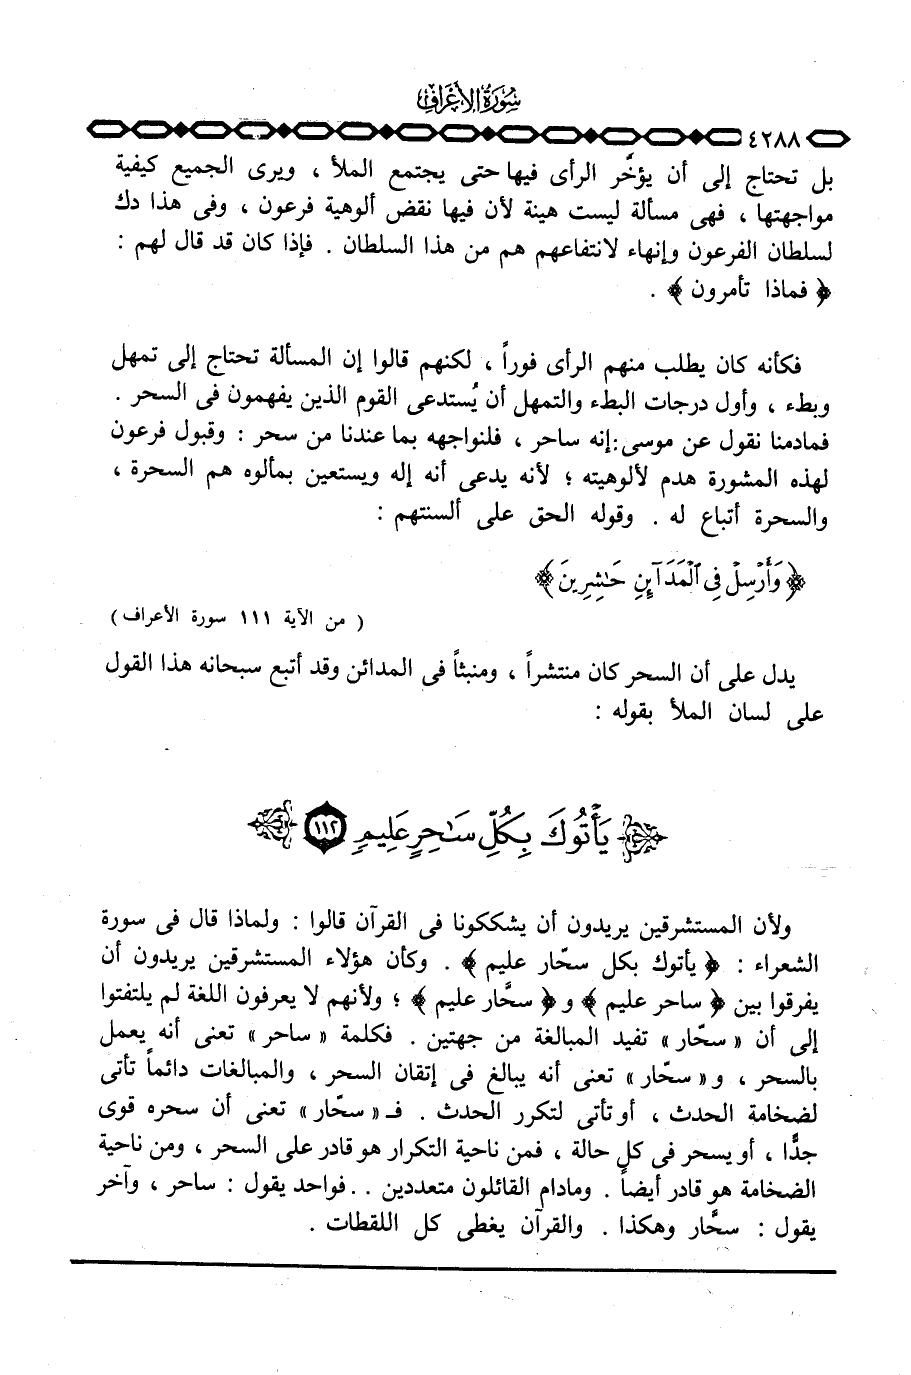 سُورَةُ الأَعْرَافِ
٤٢٨٨
بل تحتاج إلى أن يؤخَّر الرأى فيها حتى يجتمع الملأ ، ويرى الجميع كيفية
مواجهتها ، فهى مسألة ليست هينة لأن فيها نقض ألوهية فرعون ، وفى هذا دك
لسلطان الفرعون وإنهاء لانتفاعهم هم من هذا السلطان . فإذا كان قد قال لهم :
﴿ فماذا تأمرون ﴾ .
فكأنه كان يطلب منهم الرأى فوراً ، لكنهم قالوا إن المسألة تحتاج إلى تمهل
وبطء ، وأول درجات البطء والتمهل أن يُستدعى القوم الذين يفهمون فى السحر .
فمادمنا نقول عن موسى : إنه ساحر ، فلنواجهه بما عندنا من سحر : وقبول فرعون
لهذه المشورة هدم لألوهيته ؛ لأنه يدعى أنه إله ويستعين بمألوه هم السحرة ،
والسحرة أتباع له . وقوله الحق على ألسنتهم :
﴿ وَأَرْسِلْ فِى ٱلْمَدَآئِنِ حَٰشِرِينَ ﴾
( من الآية ١١١ سورة الأعراف )
يدل على أن السحر كان منتشراً ، ومنبثاً فى المدائن وقد أتبع سبحانه هذا القول
على لسان الملأ بقوله :
يَأْتُوكَ بِكُلِّ سَٰحِرٍ عَلِيمٍ ١١٢
ولأن المستشرقين يريدون أن يشككونا فى القرآن قالوا : ولماذا قال فى سورة
الشعراء : ﴿ يأتوك بكل سحّار عليم ﴾ . وكأن هؤلاء المستشرقين يريدون أن
يفرقوا بين ﴿ ساحر عليم ﴾ و ﴿ سحَّار عليم ﴾ ؛ ولأنهم لا يعرفون اللغة لم يلتفتوا
إلى أن « سحّار » تفيد المبالغة من جهتين . فكلمة « ساحر » تعنى أنه يعمل
بالسحر ، و « سحّار » تعنى أنه يبالغ فى إتقان السحر ، والمبالغات دائماً تأتى
لضخامة الحدث ، أو تأتى لتكرر الحدث . فـ « سحّار » تعنى أن سحره قوى
جدًّا ، أو يسحر فى كل حالة ، فمن ناحية التكرار هو قادر على السحر ، ومن ناحية
الضخامة هو قادر أيضاً . ومادام القائلون متعددين . . فواحد يقول : ساحر ، وآخر
يقول : سحَّار وهكذا . والقرآن يغطى كل اللقطات .